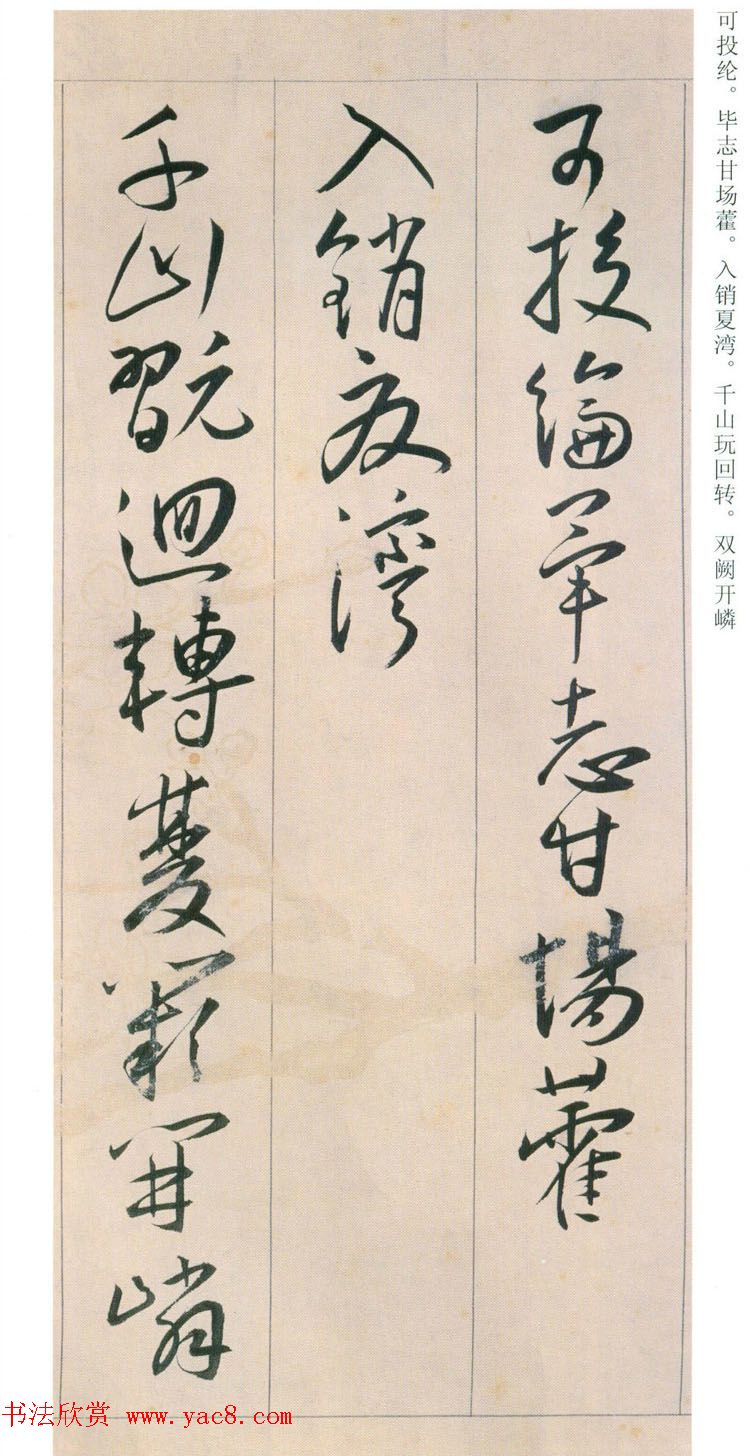 可投纶。毕志甘场藿。入销夏湾。千山玩回转。双阙开嶙
可投綸畢志甘場藿
入銷夏灣
千山翫迴轉雙闕開嶙
书法欣赏 www.yac8.com